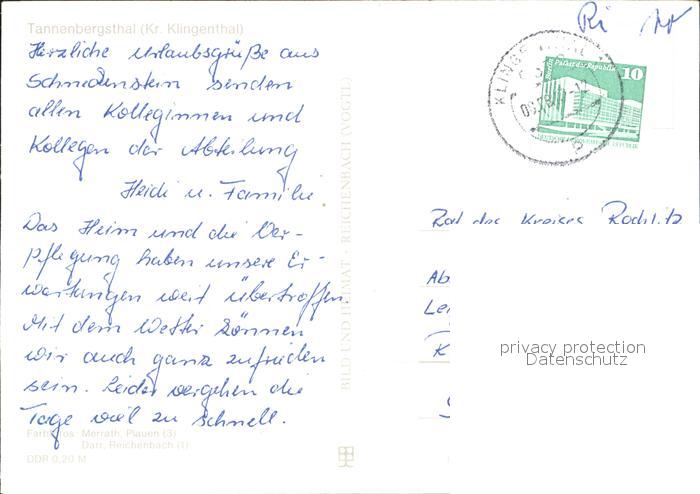 Tannenbergsthal (Kr. Klingenthal)
Herzliche Urlaubsgrüße aus
Schneckenstein senden
allen Kolleginnen und
Kollegen der Abteilung
Heidi u. Familie
Das Heim und die Ver-
pflegung haben unsere Er-
wartungen weit übertroffen.
Mit dem Wetter können
wir auch ganz zufrieden
sein. Leider vergehen die
Tage viel zu schnell.
Farbfotos: Merrath, Plauen (3)
Darr, Reichenbach (1)
DDR 0,20 M
BILD UND HEIMAT · REICHENBACH (VOGTL
Ri
KLINGE
Berlin, Palast der Republik
10
Rat des Kreises Rochlitz
Ab
Lei
K
privacy protection
Datenschutz